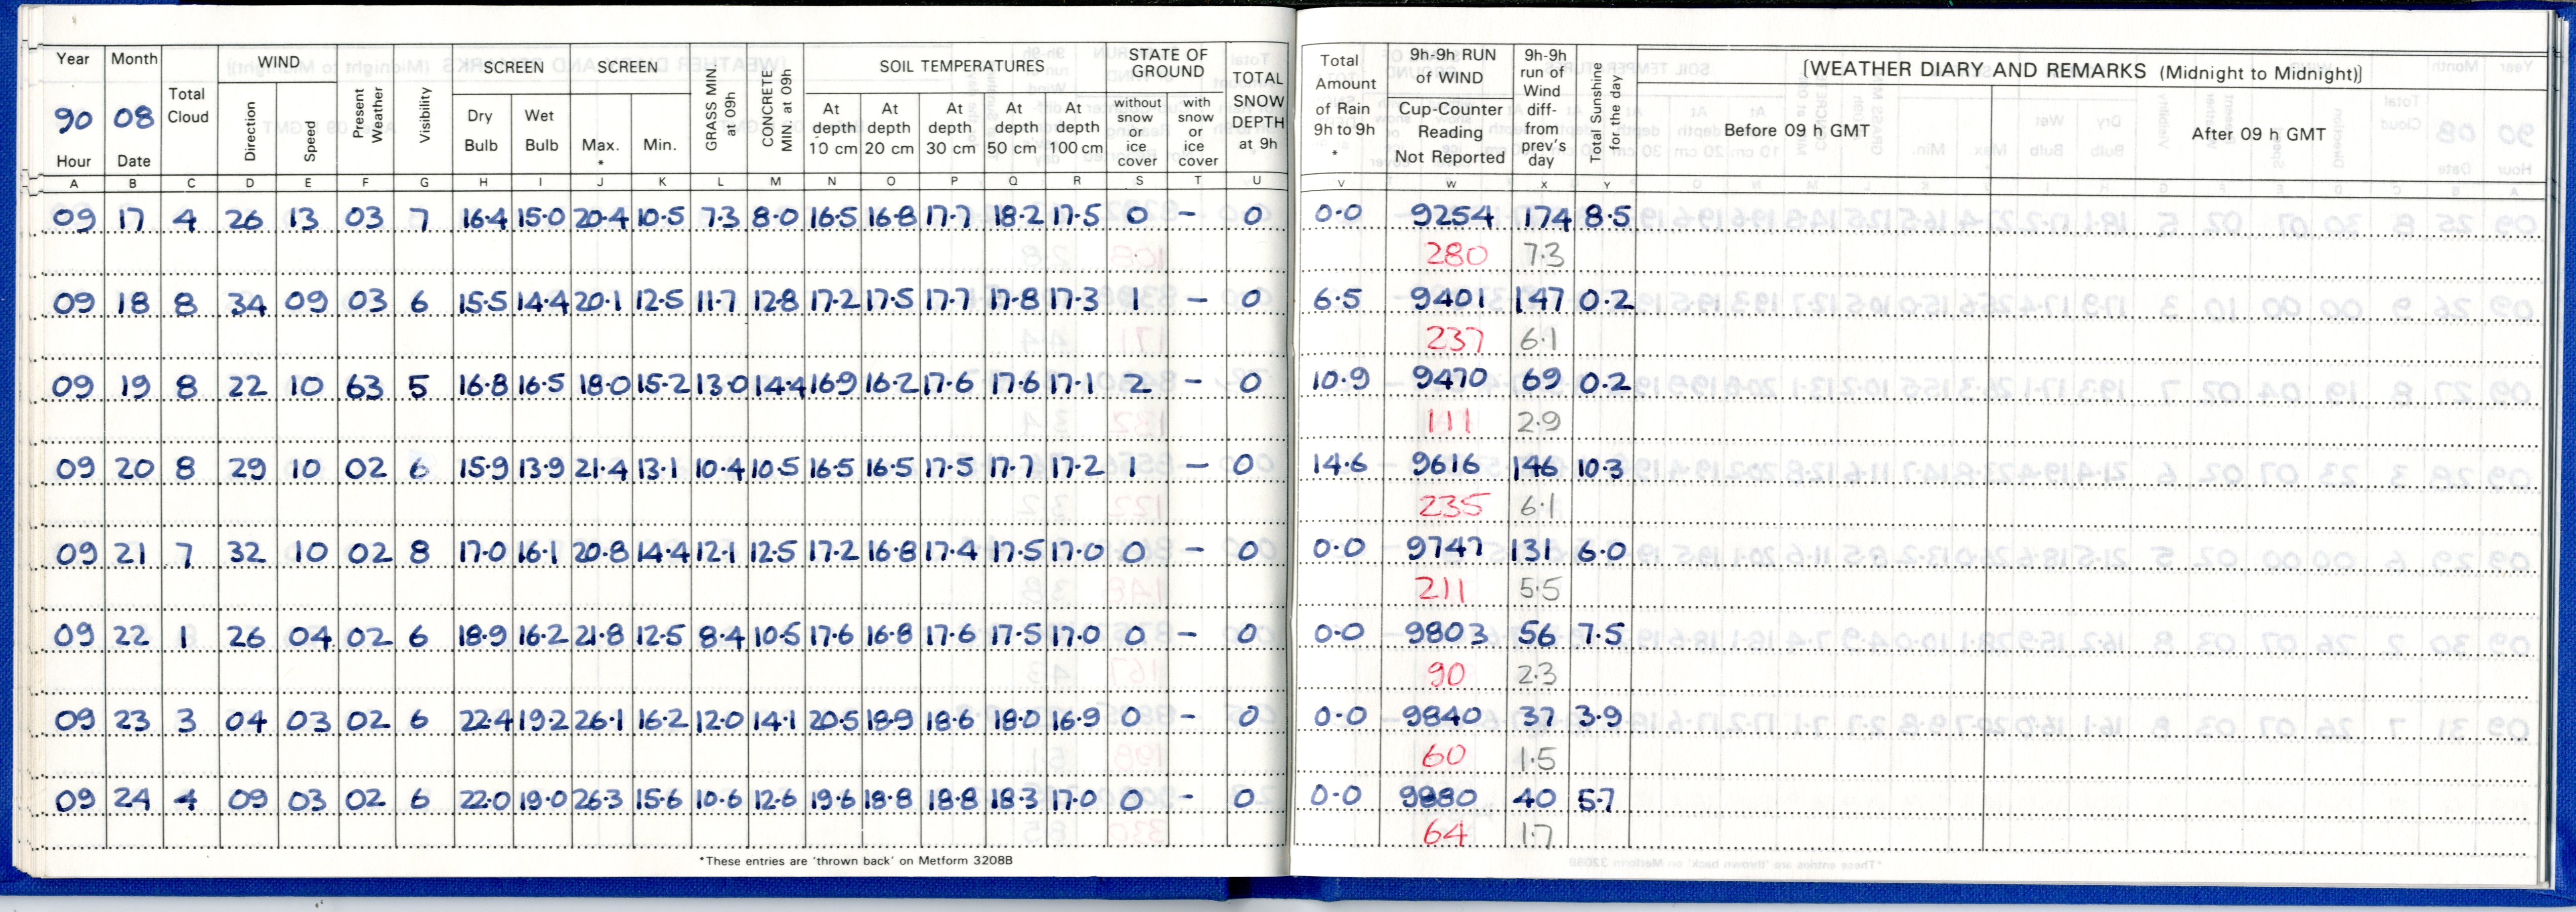 Year Month Total Cloud WIND Present Weather Visibility SCREEN SCREEN GRASS MIN at 09h CONCRETE MIN. at 09h SOIL TEMPERATURES STATE OF GROUND TOTAL SNOW DEPTH at 9h Total Amount of Rain 9h to 9h * 9h-9h RUN of WIND Cup-Counter Reading Not Reported 9h-9h run of Wind diff- from prev's day Total Sunshine for the day [WEATHER DIARY AND REMARKS (Midnight to Midnight)]
90 08 Direction Speed Dry Bulb Wet Bulb Max. * Min. At depth 10 cm At depth 20 cm At depth 30 cm At depth 50 cm At depth 100 cm without snow or ice cover with snow or ice cover Before 09 h GMT After 09 h GMT
Hour Date
A B C D E F G H I J K L M N O P Q R S T U V W X Y
09 17 4 26 13 03 7 16.4 15.0 20.4 10.5 7.3 8.0 16.5 16.8 17.7 18.2 17.5 0 - 0 0.0 9254 174 8.5
280 7.3
09 18 8 34 09 03 6 15.5 14.4 20.1 12.5 11.7 12.8 17.2 17.5 17.7 17.8 17.3 1 - 0 6.5 9401 147 0.2
237 6.1
09 19 8 22 10 63 5 16.8 16.5 18.0 15.2 13.0 14.4 16.9 16.2 17.6 17.6 17.1 2 - 0 10.9 9470 69 0.2
111 2.9
09 20 8 29 10 02 6 15.9 13.9 21.4 13.1 10.4 10.5 16.5 16.5 17.5 17.7 17.2 1 - 0 14.6 9616 146 10.3
235 6.1
09 21 7 32 10 02 8 17.0 16.1 20.8 14.4 12.1 12.5 17.2 16.8 17.4 17.5 17.0 0 - 0 0.0 9747 131 6.0
211 5.5
09 22 1 26 04 02 6 18.9 16.2 21.8 12.5 8.4 10.5 17.6 16.8 17.6 17.5 17.0 0 - 0 0.0 9803 56 7.5
90 2.3
09 23 3 04 03 02 6 22.4 19.2 26.1 16.2 12.0 14.1 20.5 18.9 18.6 18.0 16.9 0 - 0 0.0 9840 37 3.9
60 1.5
09 24 4 09 03 02 6 22.0 19.0 26.3 15.6 10.6 12.6 19.6 18.8 18.8 18.3 17.0 0 - 0 0.0 9880 40 5.7
64 1.7
*These entries are 'thrown back' on Metform 3208B